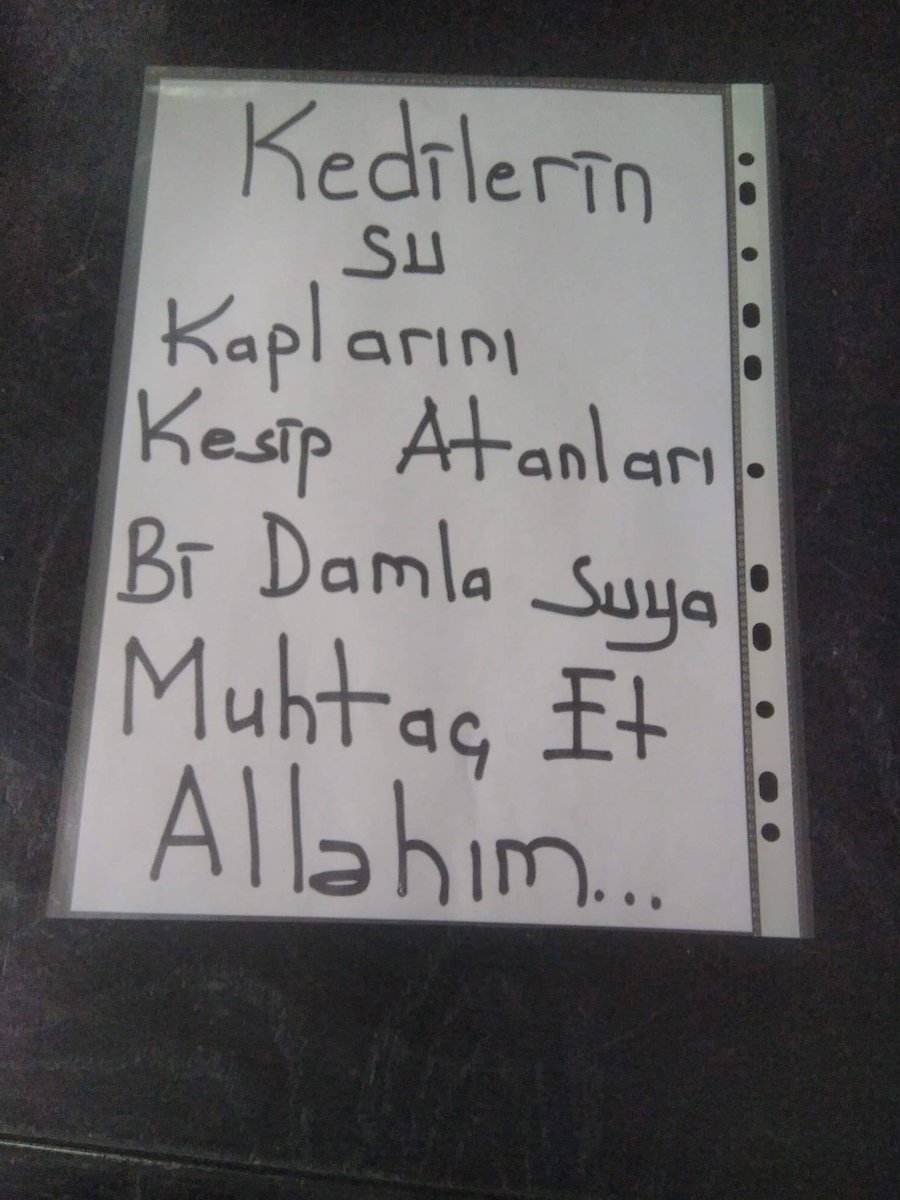 Kedilerin
su
Kaplarını
Kesip Atanları
Bi Damla Suya
Muhtaç Et
Allahım...